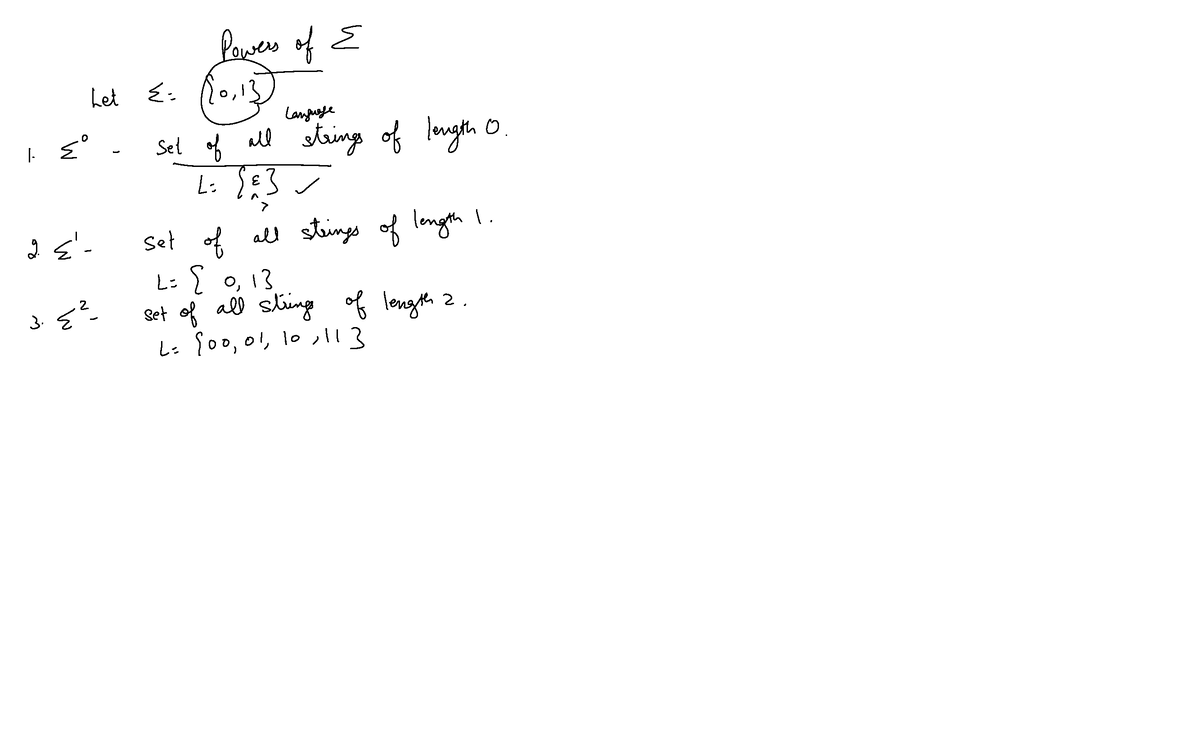 Powers of Σ
Let Σ = {0,1}
Language
1. Σ⁰ - Set of all strings of length 0.
L = {ε} ✓
^
>
2. Σ¹ - Set of all strings of length 1.
L = { 0, 1}
3. Σ² - Set of all strings of length 2.
L = {00, 01, 10, 11}